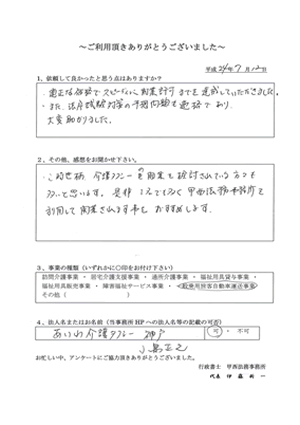 〜ご利用頂きありがとうございました〜
平成24年7月12日
1、依頼して良かったと思う点はありますか?
・適正な価格でスピーディに開業許可までを達成していただきました。
・また、法令試験対策の予想問題も適格であり、
大変助かりました。
2、その他、感想をお聞かせ下さい。
・この時世柄、介護タクシーの開業を検討されている方も
多いと思います。是非 1人でも多く 甲西法務事務所を
利用して開業されます事を おすすめします。
3、事業の種類(いずれかに〇印をお付け下さい)
訪問介護事業 ・ 居宅介護支援事業 ・ 通所介護事業 ・ 福祉用具貸与事業 ・
福祉用具販売事業 ・ 障害福祉サービス事業 ・ 一般乗用旅客自動車運送事業
その他( )
4、法人名またはお名前(当事務所HPへの法人名等の記載の可否)
あいわ介護タクシー 神戸
可 ・ 不可
小島正之
お忙しい中、アンケートにご協力頂きありがとうございました。
行政書士 甲西法務事務所
代表 伊藤 Committed